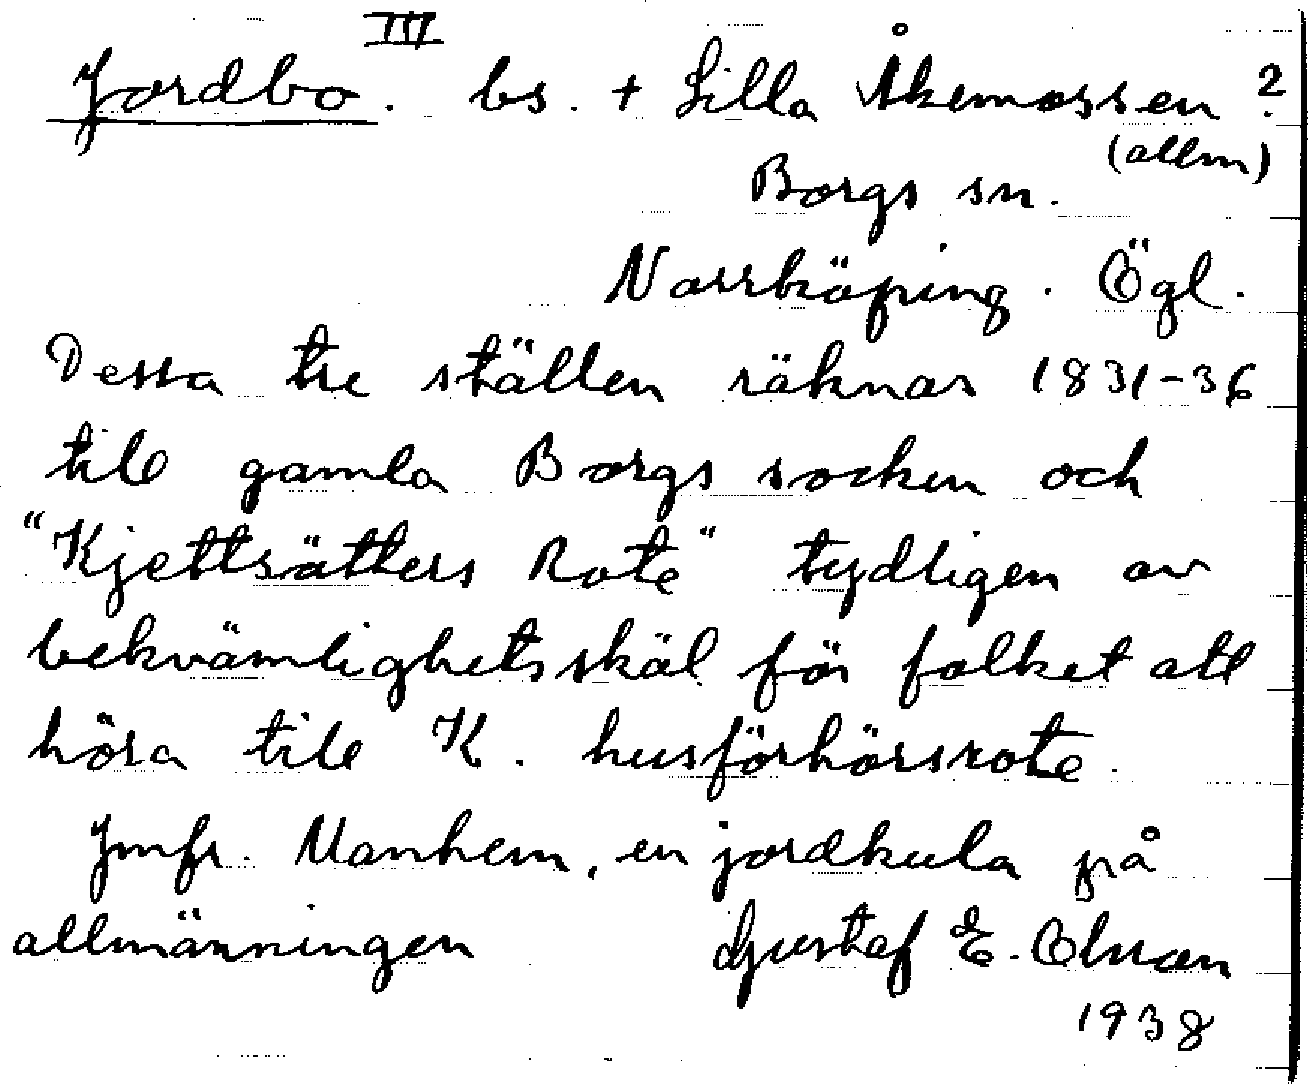 III
Jordbo. bs. + Lilla Åkemossen ?
(allm)
Borgs sn.
Norrköping. Ögl.
Dessa tre ställen räknas 1831-36
till gamla Borgs socken och
"Kjettsätters Rote" tydligen av
bekvämlighetsskäl för folket att
höra till K. husförhörsrote.
Jmfr. Manhem, en jordkula på
allmänningen
Gustaf E. Olsson
1938